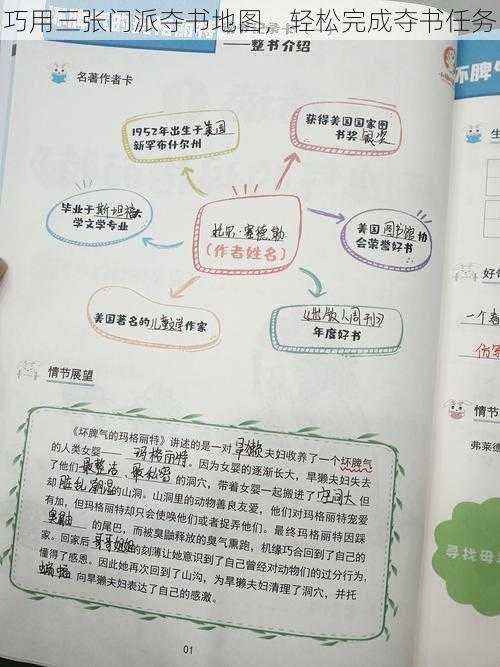 巧用三张门派夺书地图,轻松完成夺书任务
——整书介绍
名著作者卡
1952年出生于美国
新罕布什尔州
获得美国国家图
书奖银奖
毕业于斯坦福大
学文学专业
杜尔·塞德勒
(作者姓名)
美国图书馆协
会荣誉好书
美国著名的儿童文学作家
《出版人周刊》
年度好书
情节展望
《坏脾气的玛格丽特》讲述的是一对旱獭夫妇收养了一个坏脾气
的人类女婴——玛格丽特。因为女婴的逐渐长大,旱獭夫妇失去
了他们最整洁、最
的洞穴,带着女婴一起搬进了空间大但
却脏乱潮湿的山洞。山洞里的动物善良友爱,他们对玛格丽特宠爱
有加,但玛格丽特却只会使唤他们或者捉弄他们。最终玛格丽特因踩
臭鼬的尾巴,而被臭鼬释放的臭气熏跑,机缘巧合回到了自己的
家。回家后哥哥姐姐的刻薄让她意识到了自己曾经对动物们的过分行为,
懂得了感恩。因此她再次回到了山沟,为旱獭夫妇清理了洞穴,并托
蝙蝠向旱獭夫妇表达了自己的感激。
01
坏脾
生
好句
一个
仿写
情节
弗莱德
寻找母